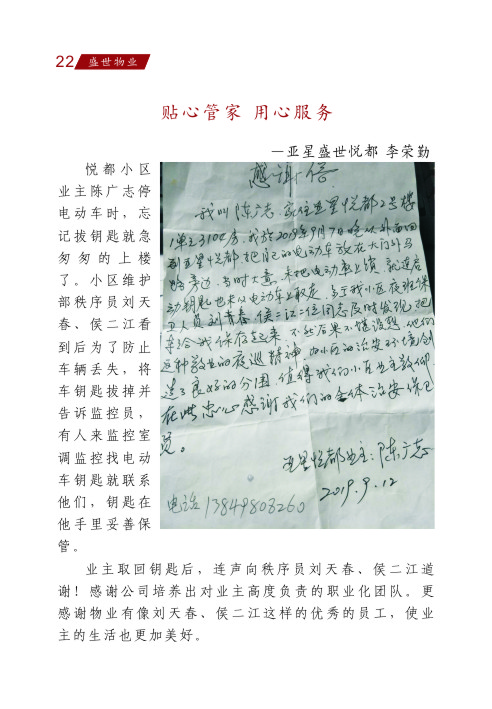 22 盛世物业
贴心管家 用心服务
—亚星盛世悦都 李荣勤
悦都小区
业主陈广志停
电动车时，忘
记拔钥匙就急
匆匆的上楼
了。小区维护
部秩序员刘天
春、侯二江看
到后为了防止
车辆丢失，将
车钥匙拔掉并
告诉监控员，
有人来监控室
调监控找电动
车钥匙就联系
他们，钥匙在
他手里妥善保
管。
感谢信
我叫陈广志，家住亚星悦都2号楼
1单元3104房，我于2019年9月7日晚从外面回
到亚星悦都把自己的电动车放在大门外马
路旁边，当时大意，未把电动车上锁，就连启
动钥匙也未从电动车上取走，多亏我小区夜班保
卫人员刘青春、侯二江二位同志及时发现把
车给我保存起来，不然后果不堪设想，他们
这种敬业的夜巡精神，为小区的治安环境创
造了良好的分围，值得我们小区业主敬仰，
在此忠心感谢我们的全体治安保卫
员。
亚星悦都业主：陈广志
2019.9.12
电话13849803260
业主取回钥匙后，连声向秩序员刘天春、侯二江道
谢！感谢公司培养出对业主高度负责的职业化团队。更
感谢物业有像刘天春、侯二江这样的优秀的员工，使业
主的生活也更加美好。